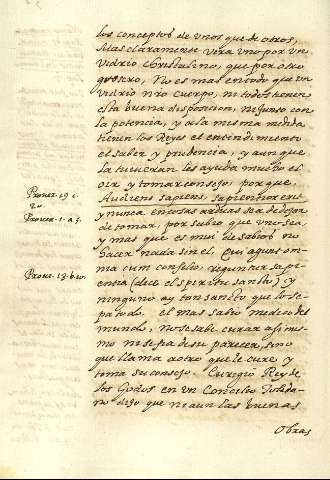 los conceptos de unos que de otros,
Mas claramente vera uno por un
vidrio christalino, que por otro
grosero, No es mas en todo que un
vidrio nro cuerpo, ni todos tienen
esta buena disposicion, ni Junto con
la potencia, y a la misma medida
tienen los Reyes el entendimiento
el saber y prudencia, y aunque
la tuvieran les ayuda mucho el
oir y tomar consejo porque,
Prover. 19. c.
20.
Audiens sapiens, sapientior erit
Prover. 1. a 5.
y nunca en cosas arduas sea de dejar
de tomar, por sabio que uno sea,
y mas que es mui de sabios no
hacer nada sin el; Qui agunt om-
nia cum consilio, reguntur sapi-
Prov. 13. b. 10.
entia (dice el spiritu santo) y
ninguno ay tan sancto que lo se-
pa todo. el mas sabio medico del
mundo, No se sabe curar assi mis-
mo ni se fia de su parecer, sino
que llama a otro que le cure y
toma su consejo. Rey de
los Godos en un Concilio Toleda-
no dijo que ni aun las buenas
Obras